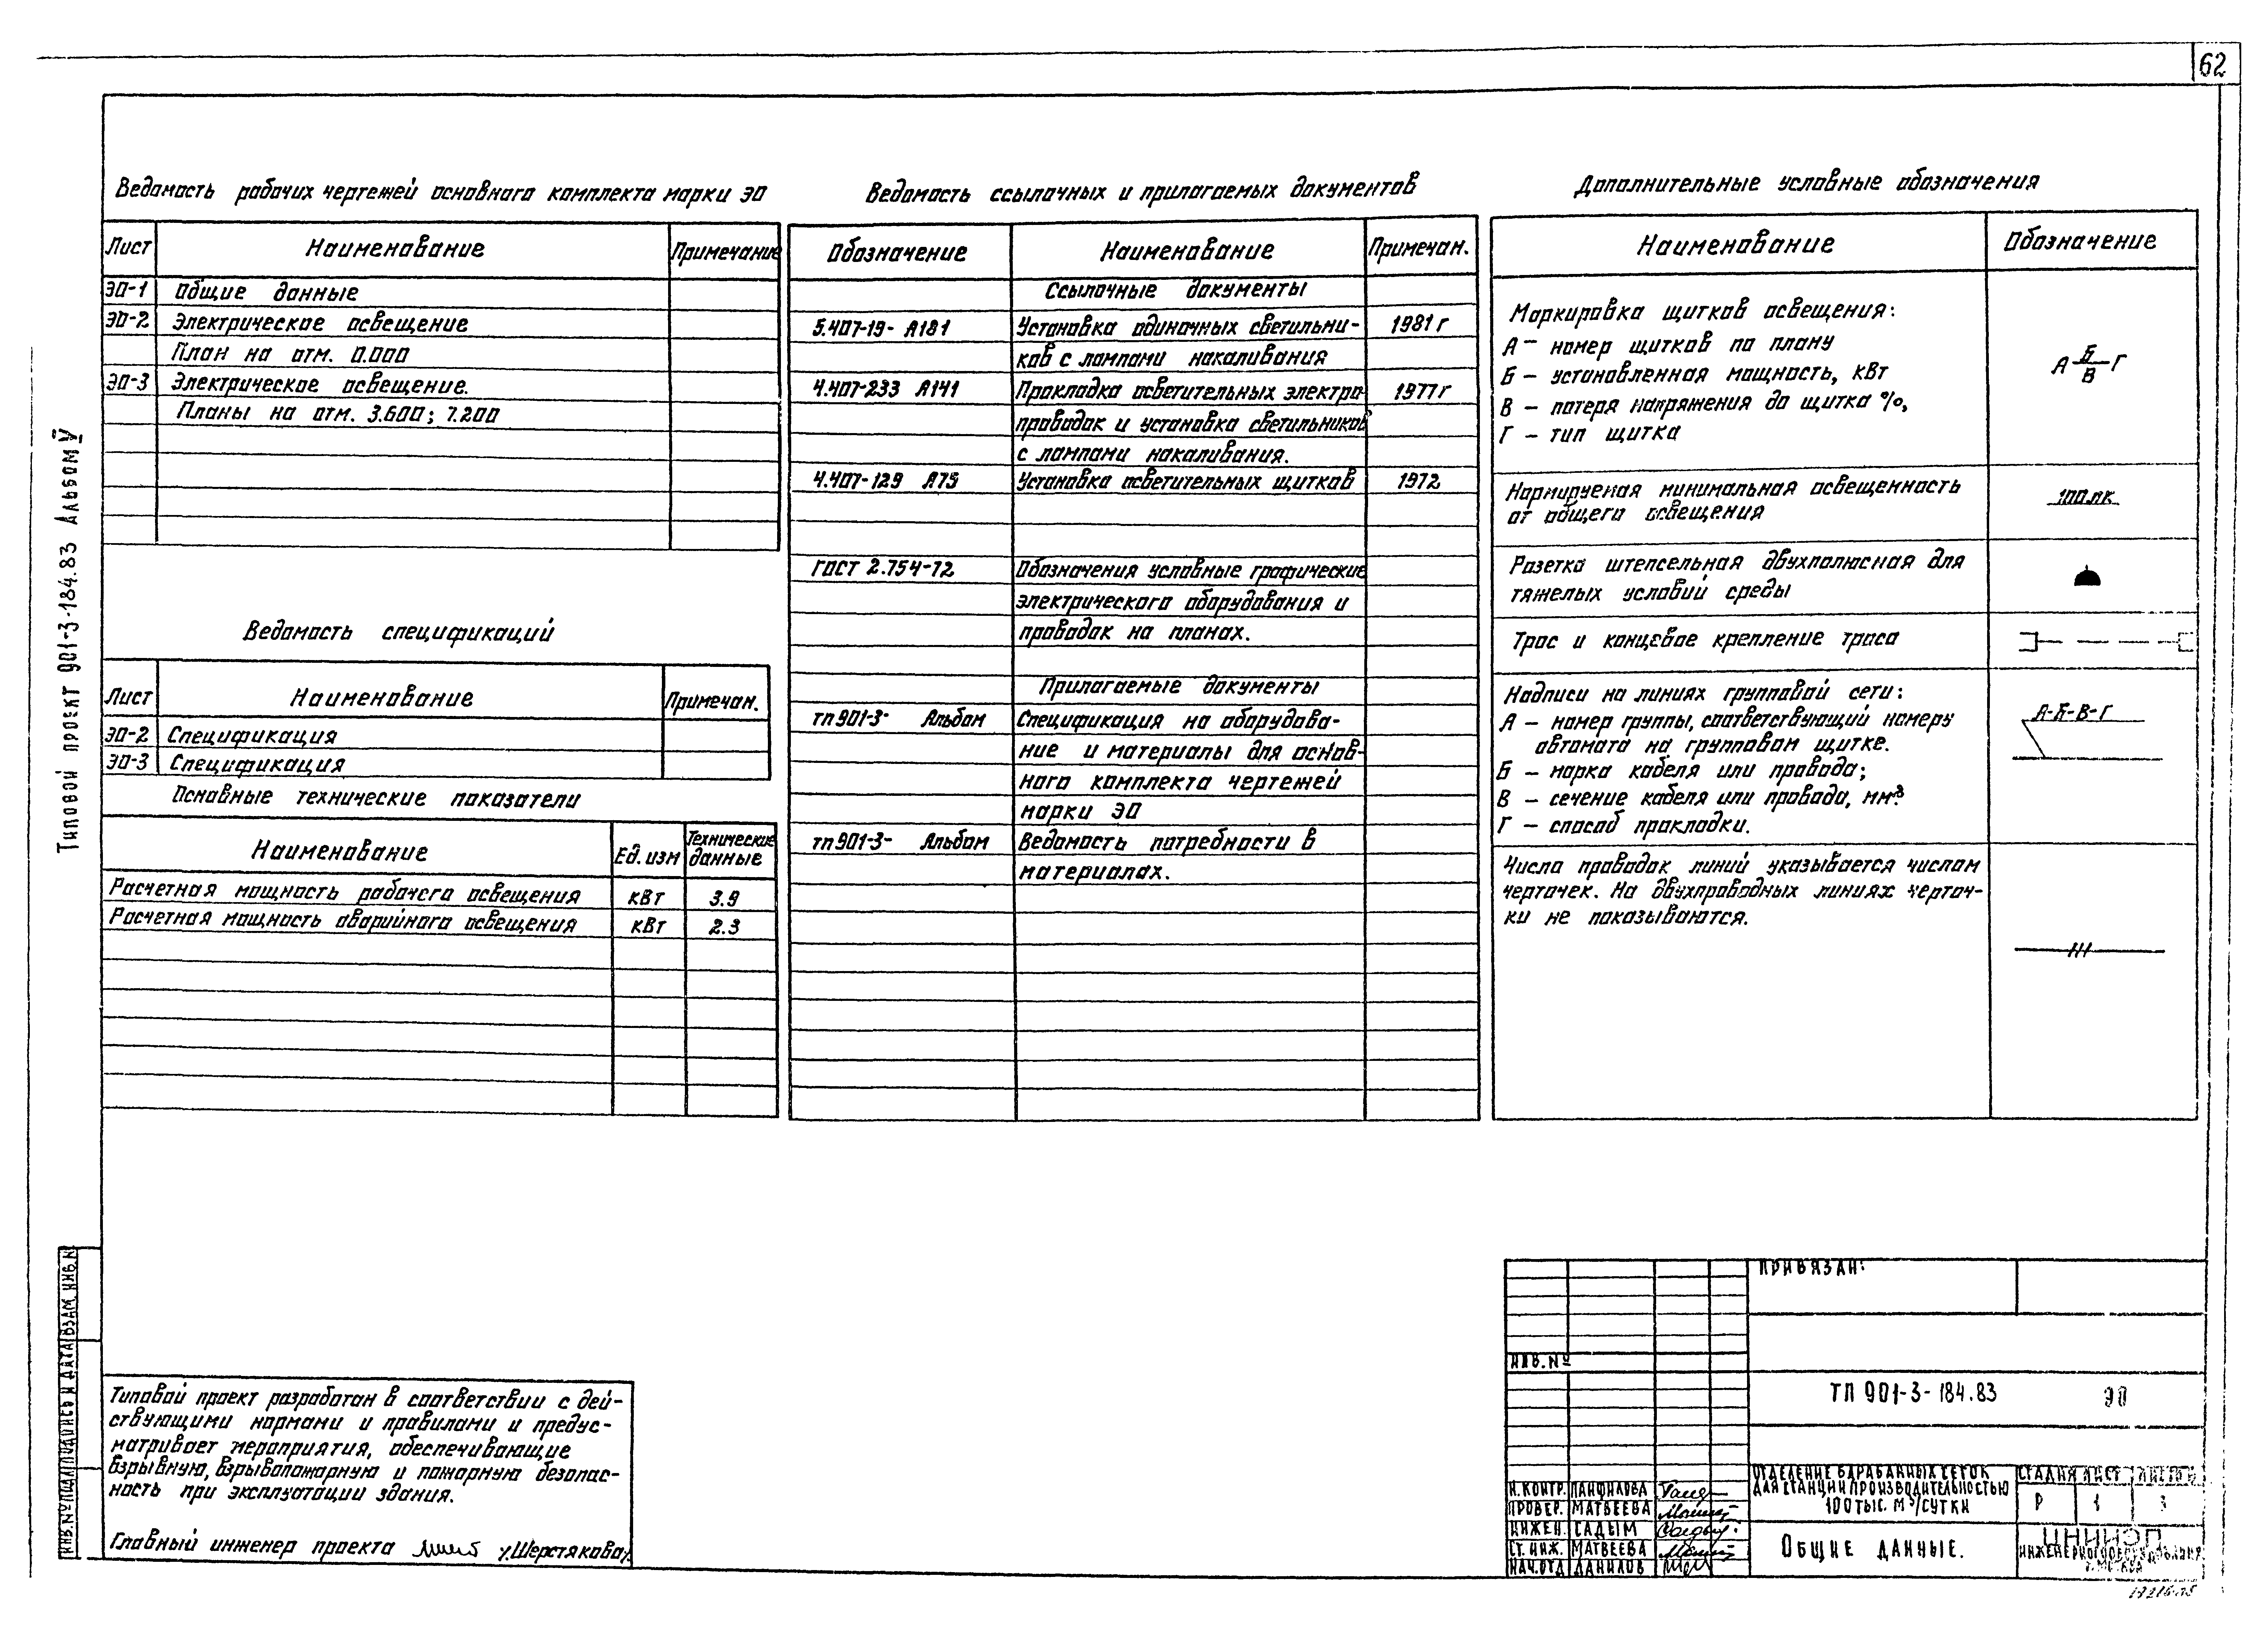 62
Типовой проект 901-3-184.83 Альбом V
Ведомость рабочих чертежей основного комплекта марки ЭО
Лист Наименование Примечание
ЭО-1 Общие данные
ЭО-2 Электрическое освещение
План на отм. 0.000
ЭО-3 Электрическое освещение.
Планы на отм. 3.600; 7.200
Ведомость спецификаций
Лист Наименование Примечан.
ЭО-2 Спецификация
ЭО-3 Спецификация
Основные технические показатели
Наименование Ед. изм Технические данные
Расчетная мощность рабочего освещения кВт 3.9
Расчетная мощность аварийного освещения кВт 2.3
Ведомость ссылочных и прилагаемых документов
Обозначение Наименование Примечан.
Ссылочные документы
5.407-19- А181 Установка одиночных светильни- 1981 г
ков с лампами накаливания
4.407-233 А141 Прокладка осветительных электро- 1977 г
проводок и установка светильников
с лампами накаливания.
4.407-129 А75 Установка осветительных щитков 1972
ГОСТ 2.754-72 Обозначения условные графические
электрического оборудования и
проводок на планах.
Прилагаемые документы
тп 901-3- Альбом Спецификация на оборудова-
ние и материалы для основ-
ного комплекта чертежей
марки ЭО
тп 901-3- Альбом Ведомость потребности в
материалах.
Дополнительные условные обозначения
Наименование Обозначение
Маркировка щитков освещения:
А – номер щитков по плану
Б – установленная мощность, кВт
В – потеря напряжения до щитка %,
Г – тип щитка
А Б/В Г
Нормируемая минимальная освещенность
от общего освещения
100 лк
Розетка штепсельная двухполюсная для
тяжелых условий среды
Трос и концевое крепление троса
Надписи на линиях групповой сети:
А – номер группы, соответствующий номеру
автомата на групповом щитке.
Б – марка кабеля или провода;
В – сечение кабеля или провода, мм²
Г – способ прокладки.
А-Б-В-Г
Число проводок линий указывается числом
черточек. На двухпроводных линиях черточ-
ки не показываются.
Типовой проект разработан в соответствии с дей-
ствующими нормами и правилами и предус-
матривает мероприятия, обеспечивающие
взрывную, взрывопожарную и пожарную безопас-
ность при эксплуатации здания.
Главный инженер проекта /Шерстякова/
Инв. № подл. Подпись и дата Взам. инв. №
Привязан:
Инв. №
ТП 901-3-184.83 ЭО
Н. контр. Панфилова
Провер. Матвеева
Инжен. Садым
Ст. инж. Матвеева
Нач. отд Данилов
Отделение барабанных сеток
для станции производительностью
100 тыс. м³/сутки
Стадия Лист Листов
Р 1 3
Общие данные.
ЦНИИЭП
инженерного оборудования
г. Москва